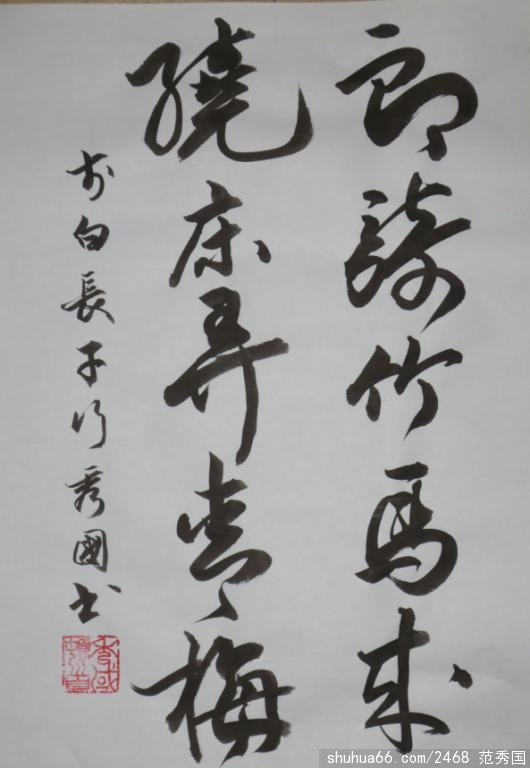 郎騎竹馬来
繞床弄青梅
李白長干行秀國书
shuhua66.com/2468 范秀国